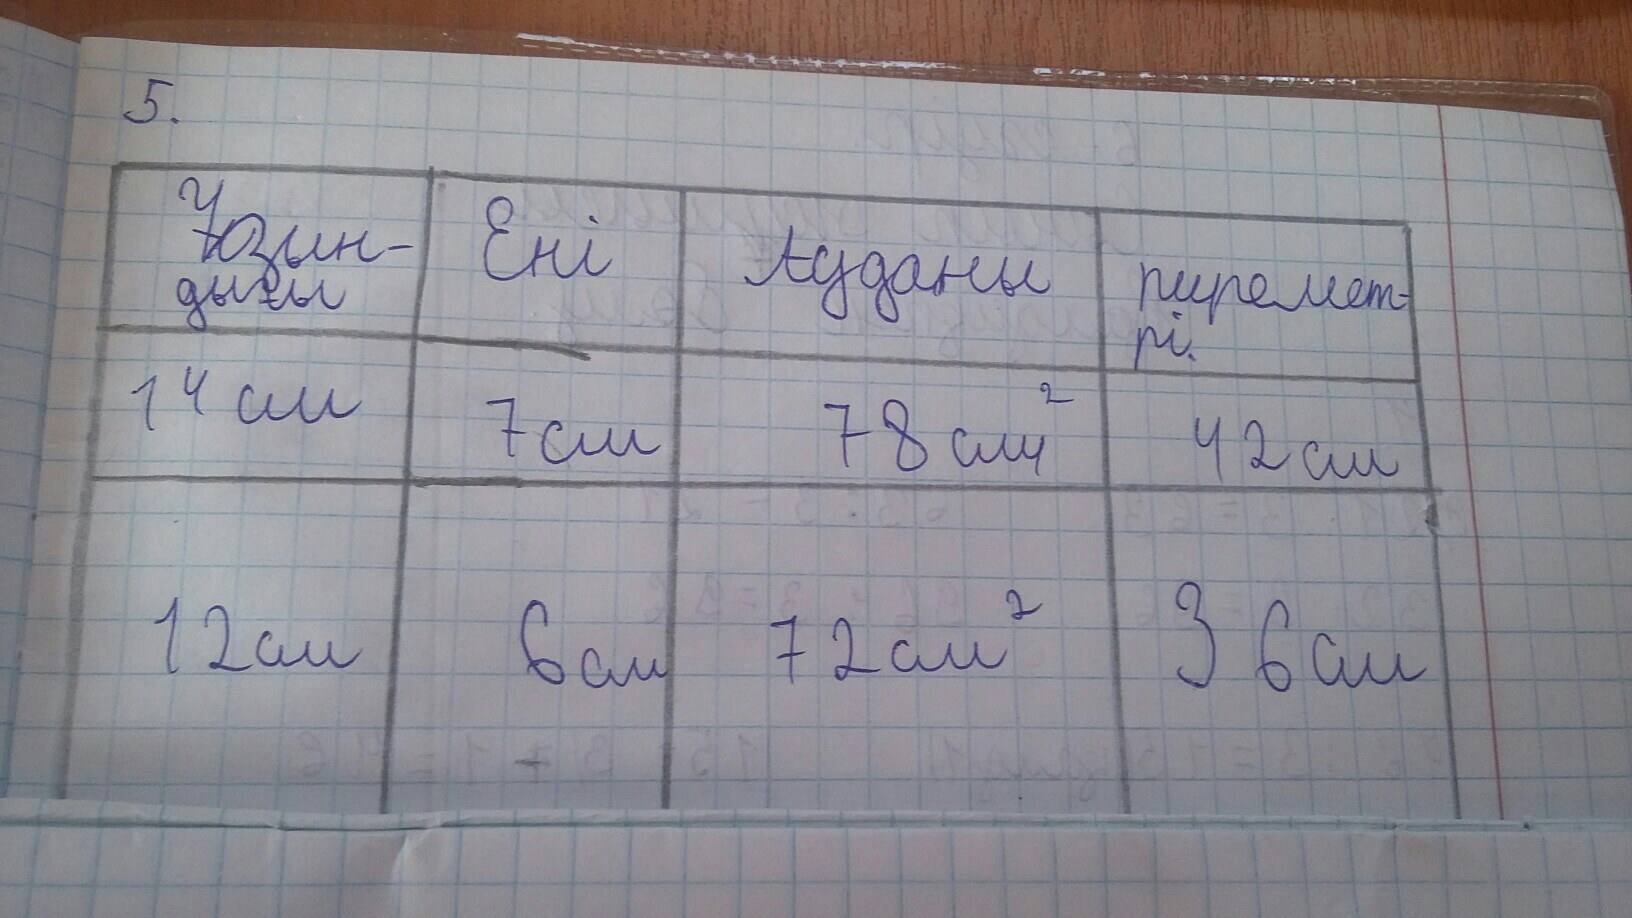 5.
Ұзын-
дығы
Ені
Ауданы
пиремет-
рі.
14 см
7см
78 см²
42см
12см
6см
72см²
36см